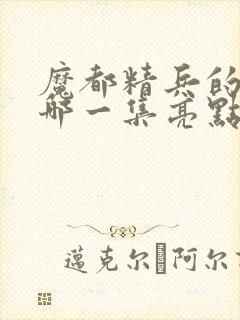 魔都精兵的
哪一集亮點
邁克尔·阿尔